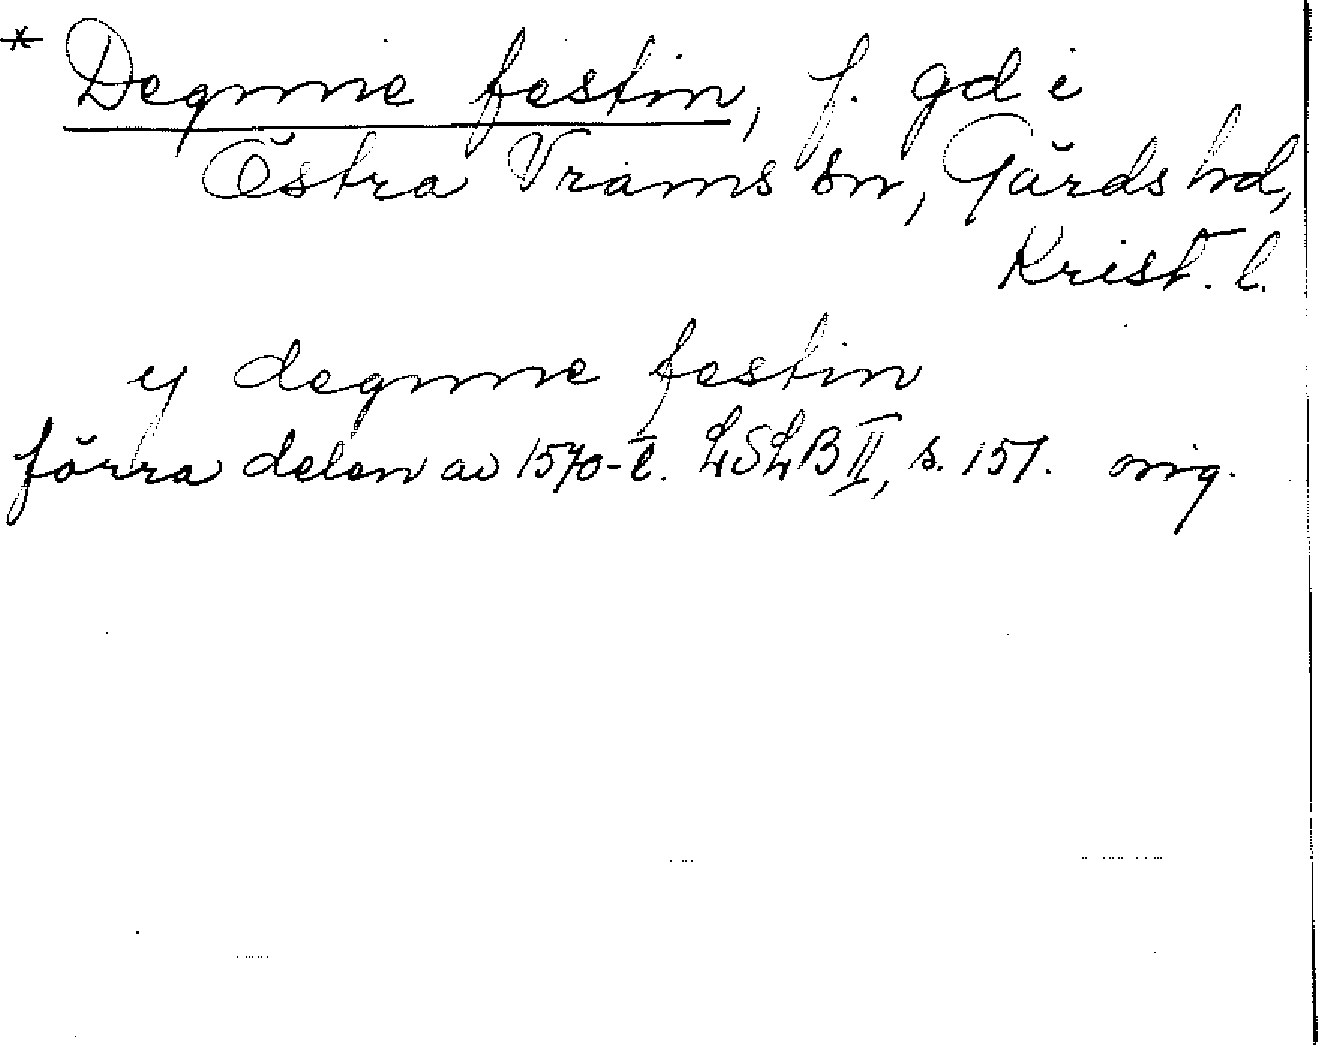 * Degnne festin, f. gd i
Östra Vrams sn, Gärds hd,
Krist. l.
y degnne festin
förra delen av 1570-t. LSLB II, s. 151. orig.